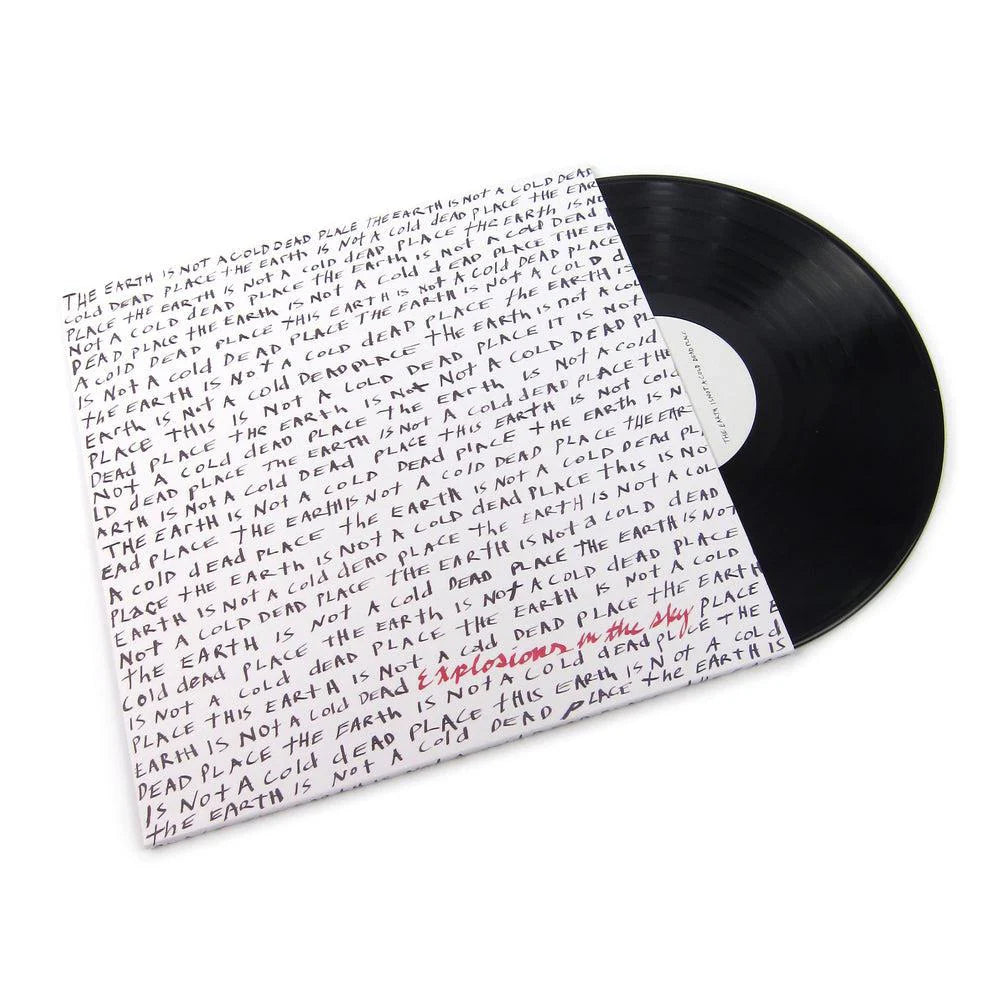 THE EARTH IS NOT A COLD DEAD PLACE THE EARTH IS NOT A COLD DEAD
COLD DEAD PLACE tHE EARTH IS NOt A COLD dEAD PLACE tHE EAR
PLACE tHE EARTH IS NOt A COLD dEAD PLACE THE EARth IS NO
NOt A COLD dEAD PLACE tHE EARtH IS NOt A COLD DEAD
DEAD PLACE tHE EARtH IS NOt A COLD dEAD PLACE THE EA
A COLD DEAD PLACE tHIS EARtH IS NOt A COLD DEAD PLACE
IS NOt A COLD DEAD PLACE THE EARtH IS NOt A COLD d
tHE EARTH IS NOt A COLD dEAD PLACE tHE EARtH IS NOt A COL
EARtH IS NOt A COLD DEAD PLACE tHE EARTH IS NOT A COLD
PLACE THIS IS NOt A COLD DEAD PLACE IT IS NOT
DEAD PLACE tHE EARtH IS NOt A COLD DEAD PL
NOT A COLD dEAD PLACE THE EARtH IS NOt A COLD
LD dEAD PLACE THE EARtH IS NOt A COLD dEAD PLACE tHE
ARTH IS NOt A COLD DEAD PLACE tHIS EARTH IS NOt COLD
THE EARtH IS NOt A COLD DEAD PLACE tHE EARtH IS N
EAD PLACE tHE EARtH IS NOt A COLD DEAD PLACE tHE EAR
A COLD dEAD PLACE tHE EARtH IS NOt A COLD DEAD PL
PLACE tHE EARtH IS NOt A COLD dEAD PLACE tHIS IS NO
EARtH IS NOt A COLD dEAD PLACE tHE EARtH IS NOt A COL
NOt A COLD DEAD PLACE tHE EARtH IS NOt a COLD dEAD
tHE EARTH IS NOt A COLD DEAD PLACE tHE EARtH IS NOT
COLD dEAD PLACE tHE EARtH IS NOt A COLD DEAD PLACE
IS NOT A COLD DEAD PLACE tHE EARtH IS NOt A COLD
PLACE tHIS EARtH IS NOt A COLD DEAD PLACE tHE EARtH
EARtH IS NOt A COLD DEAD explosions in the sky PLACE
DEAD PLACE tHE EARtH IS NOt A COLD dEAD PLACE tHE E
IS NOt A COLD dEAD PLACE tHIS EARtH IS NOt A COLD
thE EARTH IS NOt A COLD DEAD PLACE tHE EARtH IS
THE EARTH IS NOT A COLD DEAD PLACE